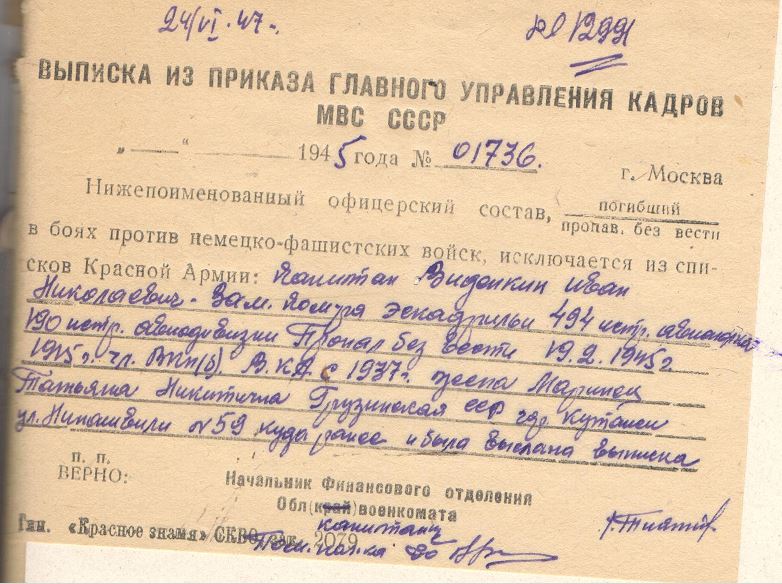 24/VI.47г.
12991
ВЫПИСКА ИЗ ПРИКАЗА ГЛАВНОГО УПРАВЛЕНИЯ КАДРОВ
МВС СССР
„ “ 1945 года № 01736. г. Москва
Нижепоименованный офицерский состав, погибший
пропав. без вести
в боях против немецко-фашистских войск, исключается из спи-
сков Красной Армии: Капитан Видейкин Иван
Николаевич. Зам. эскадрильи 494 истр.
190 истр. авиадивизии Пропал без вести 19.2.1945г
1915г. чл. ВКП(б), В.К.А. с 1937г. жена Маринец
Татьяна Никитична Грузинская ССР гор. Кутаиси
ул. №59 куда ранее и была выслана выписка
п. п.
ВЕРНО:
Начальник Финансового отделения
Обл(край)военкомата
капитан
Тип. «Красное знамя» СКВО, зак. 2079